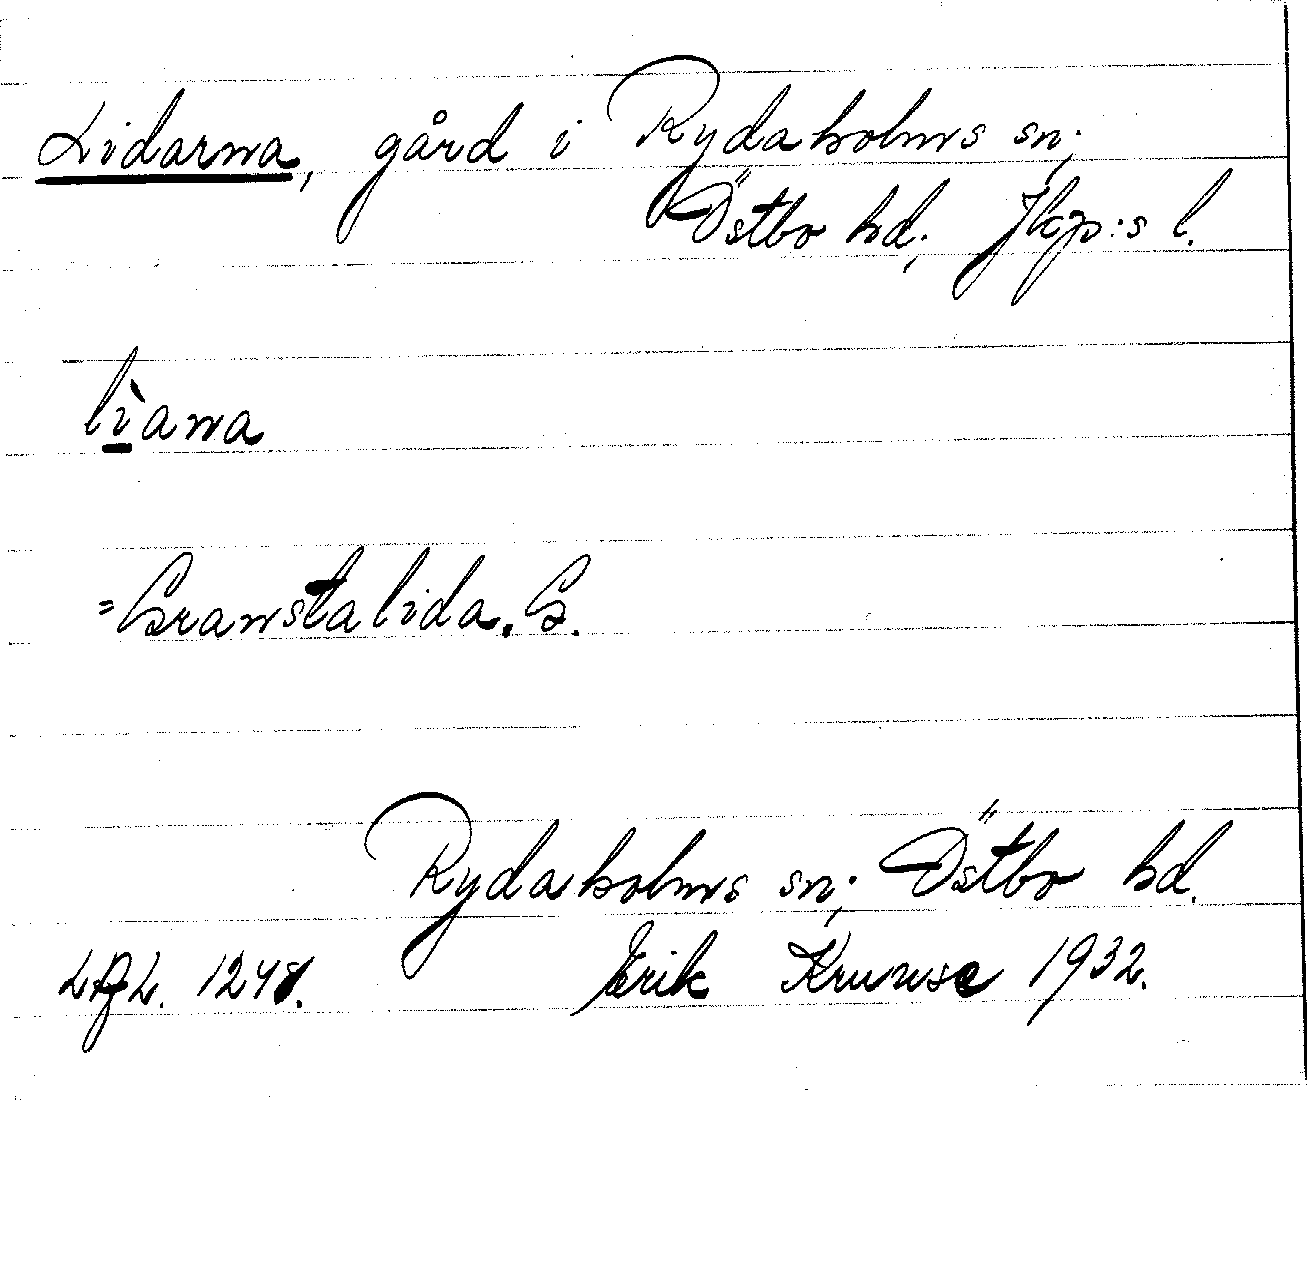 Lidarna, gård i Rydaholms sn;
Östbo hd; Jkp:s l.
lìana
=Granstalida. G.
Rydaholms sn; Östbo hd.
1248. Erik Kruuse 1932.